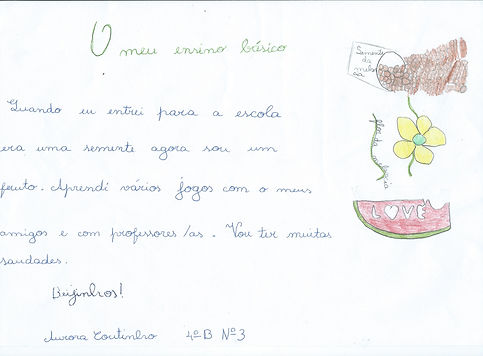 O meu ensino básico
Quando eu entrei para a escola
era uma semente agora sou um
fruto. Aprendi vários jogos com o meus
amigos e com professores/as. Vou ter muitas
saudades.
Beijinhos!
Aurora Coutinho 4ºB Nº3
Semente
da
melan
cia
flor da
LOVE